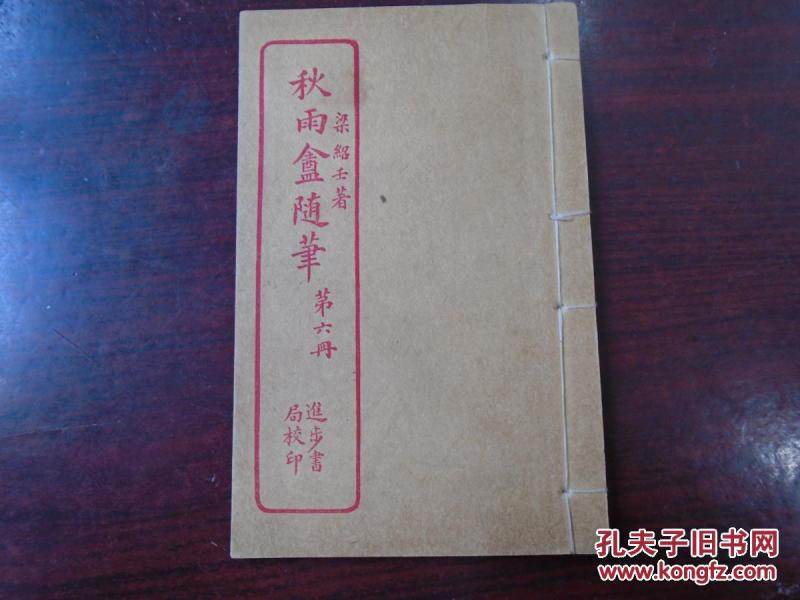 秋雨盦随筆
梁紹壬著
第六冊
進步書
局校印
孔夫子旧书网
www.kongfz.com